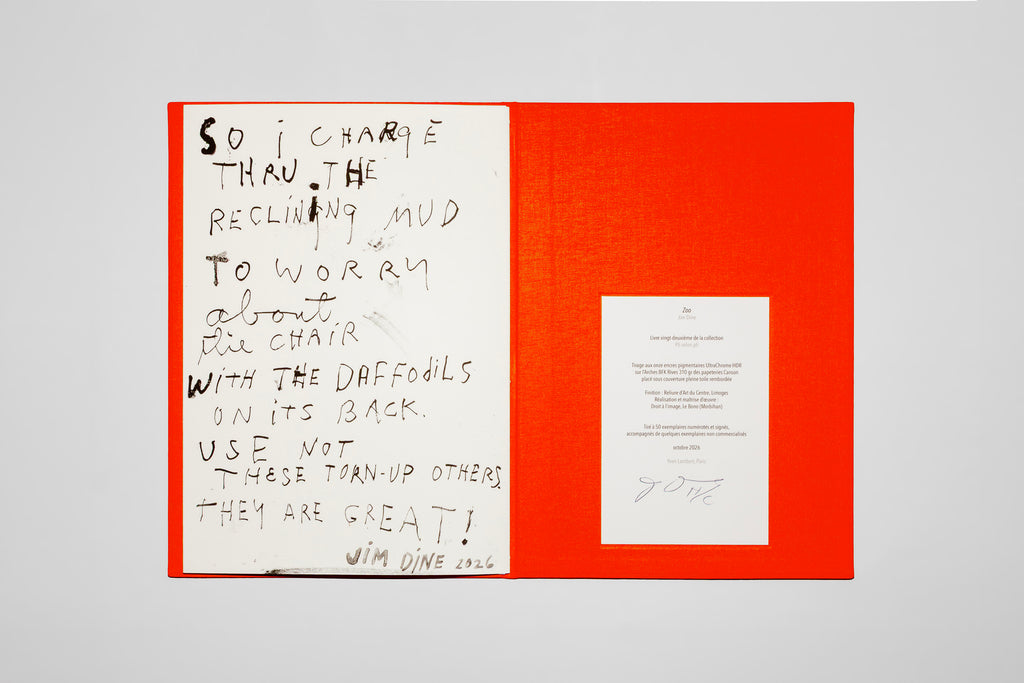 SO i CHARgE
THRU THE
RECLiNiNg MUD
TO WORRY
about
the CHAiR
WiTH THE DAFFODiLS
ON iTS BACK.
USE NOT
THESE TORN-UP OTHERS.
THEY ARE GREAT!
JiM DiNE 2026
Zoo
Jim Dine
Livre vingt deuxième de la collection
Tirage aux onze encres pigmentaires UltraChrome HDR
sur l'Arches BFK Rives 310 gr des papeteries Canson
placé sous couverture pleine toile rembordée
Finition : Reliure d'Art du Centre, Limoges
Réalisation et maîtrise d'œuvre :
Droit à l'image, Le Bono (Morbihan)
Tiré à 50 exemplaires numérotés et signés,
accompagnés de quelques exemplaires non commercialisés
octobre 2026
Yvon Lambert, Paris
H/C